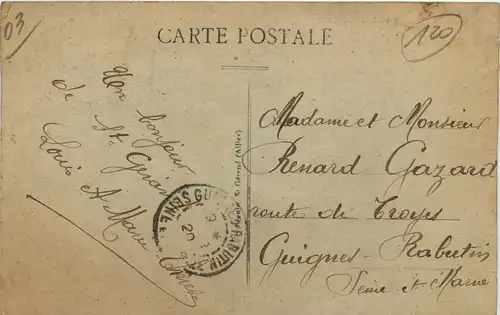 03
CARTE POSTALE
120
Un bonjour
de St Gérand
Louis A-Marie
Madame et Monsieur
Renard Gazard
route de Troyes
Guignes-Rabutin
Seine et Marne
St Gérand (Allier)
GUIGNES RABUTIN
SEINE ET